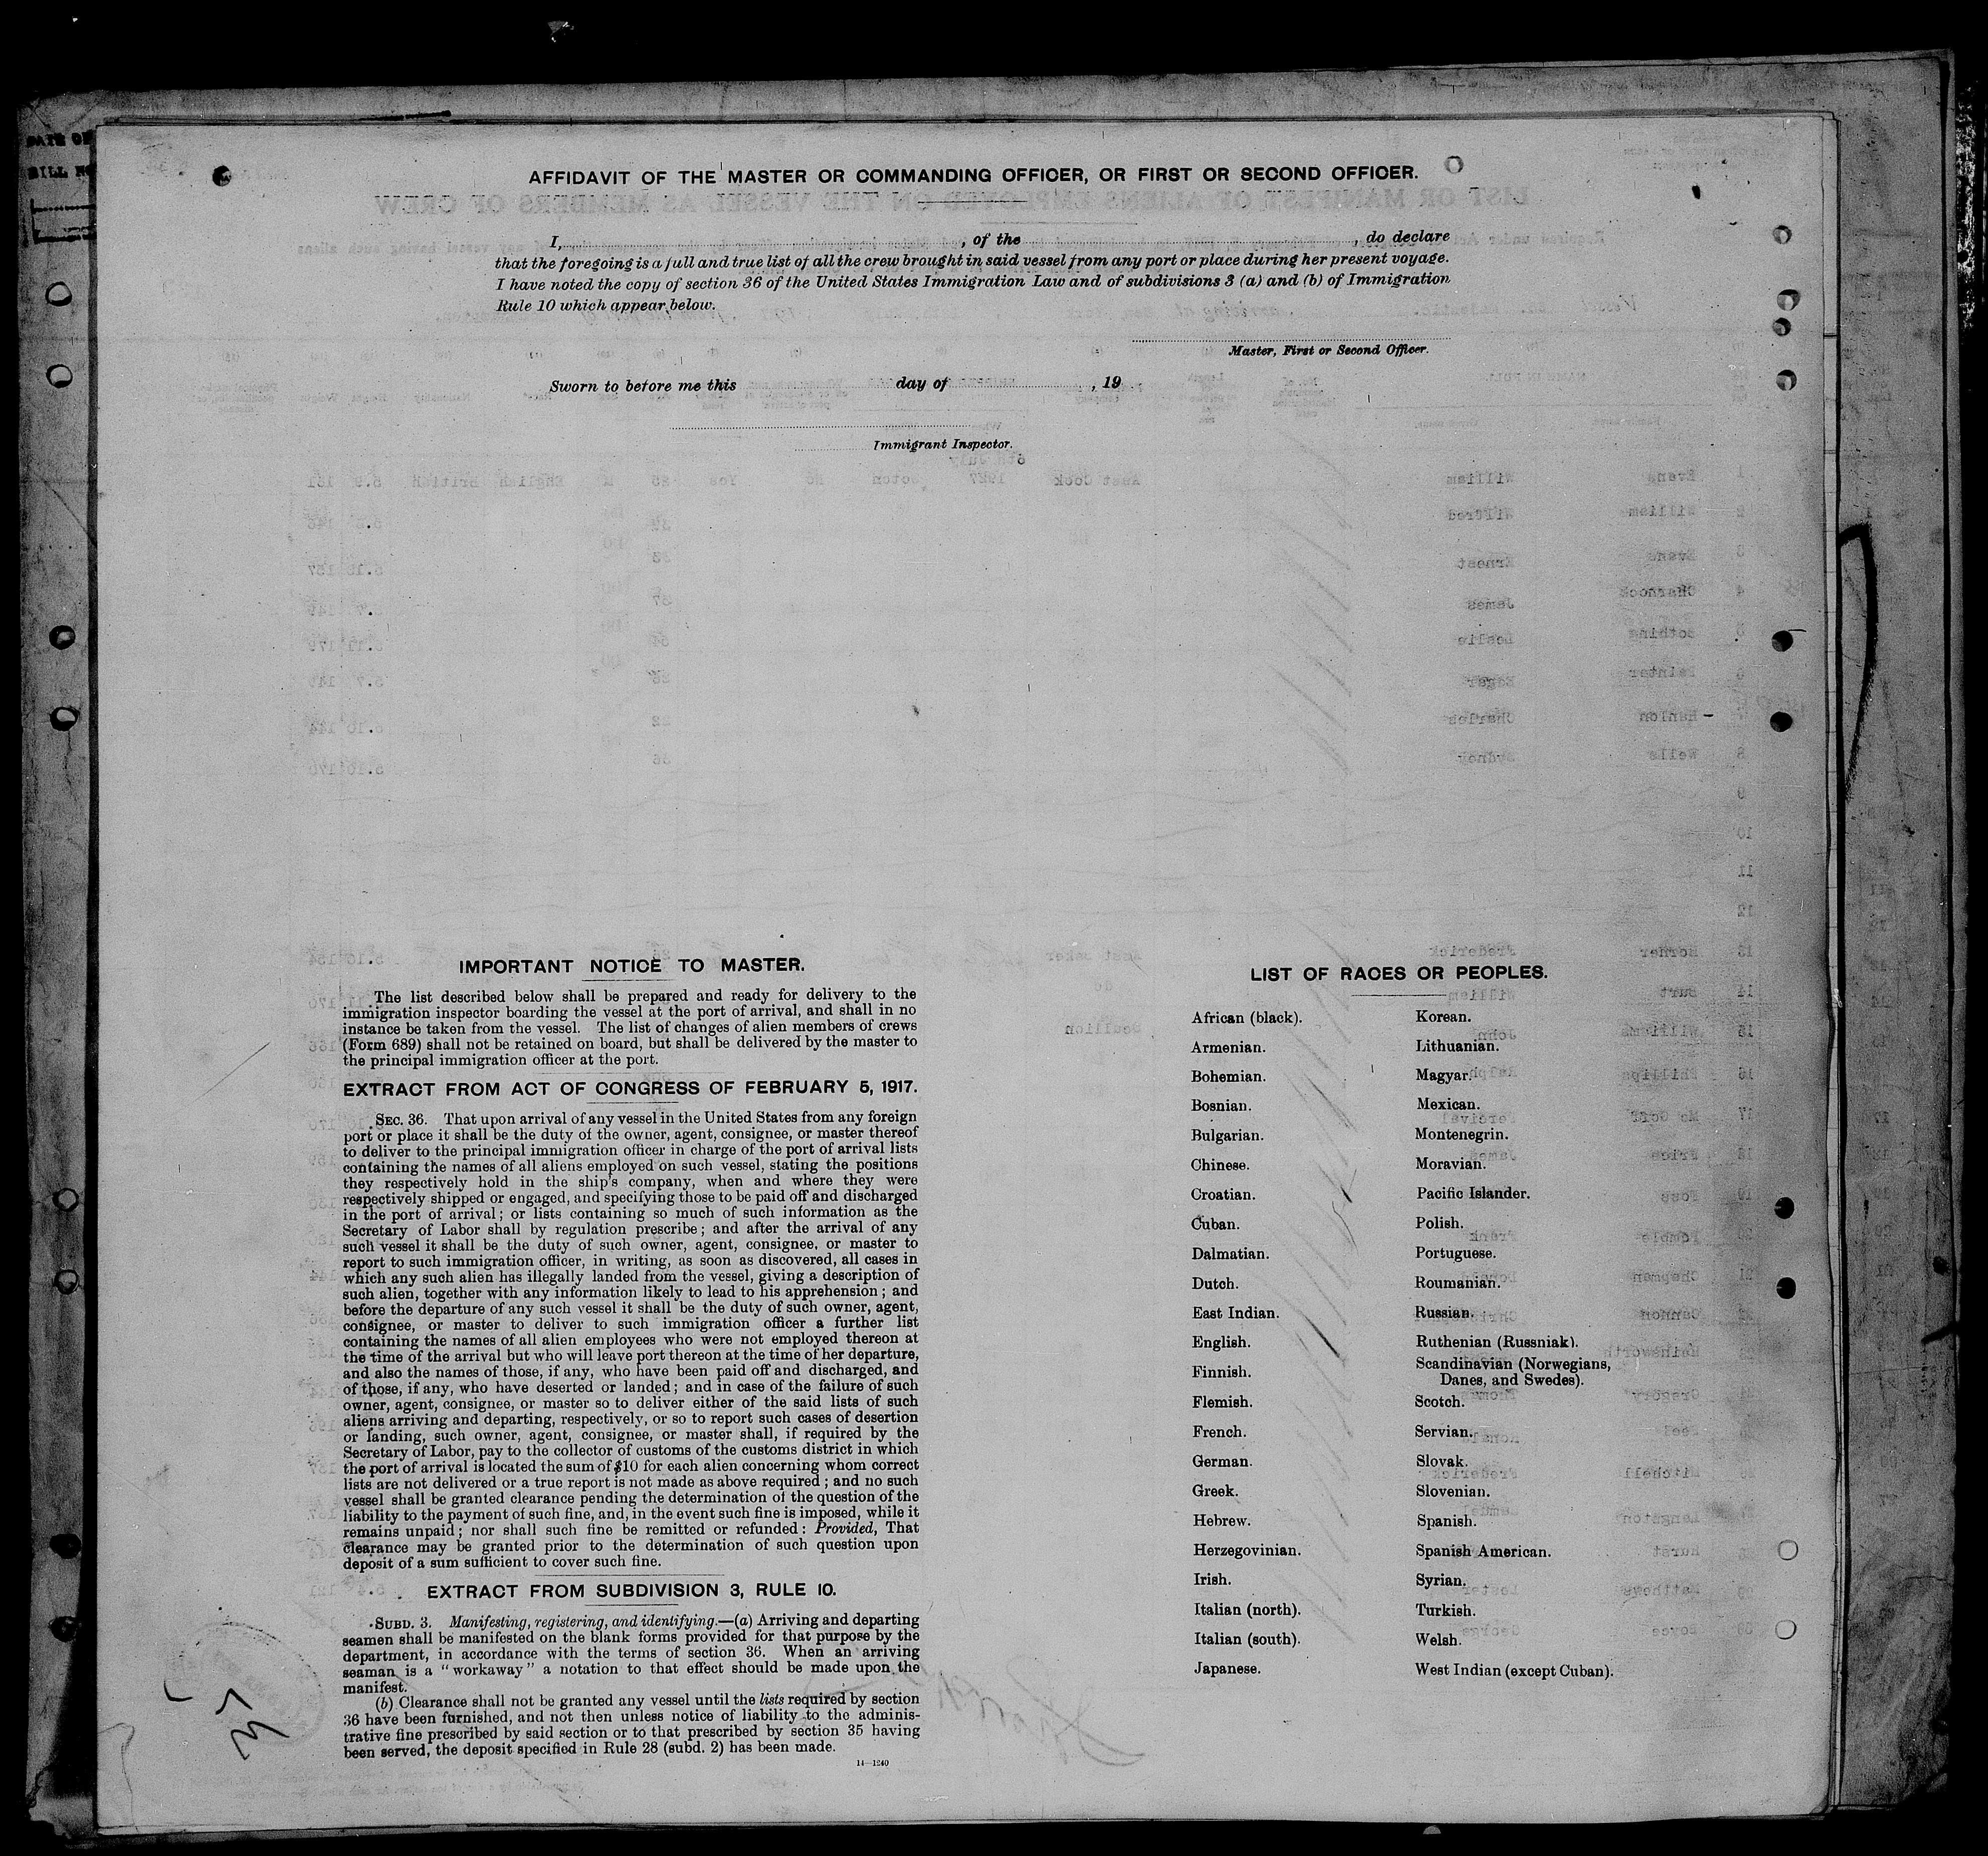 AFFIDAVIT OF THE MASTER OR COMMANDING OFFICER, OR FIRST OR SECOND OFFICER.
I, , of the , do declare
that the foregoing is a full and true list of all the crew brought in said vessel from any port or place during her present voyage.
I have noted the copy of section 36 of the United States Immigration Law and of subdivisions 3 (a) and (b) of Immigration
Rule 10 which appear below.
Master, First or Second Officer.
Sworn to before me this day of , 19
Immigrant Inspector.
IMPORTANT NOTICE TO MASTER.
The list described below shall be prepared and ready for delivery to the
immigration inspector boarding the vessel at the port of arrival, and shall in no
instance be taken from the vessel. The list of changes of alien members of crews
(Form 689) shall not be retained on board, but shall be delivered by the master to
the principal immigration officer at the port.
EXTRACT FROM ACT OF CONGRESS OF FEBRUARY 5, 1917.
SEC. 36. That upon arrival of any vessel in the United States from any foreign
port or place it shall be the duty of the owner, agent, consignee, or master thereof
to deliver to the principal immigration officer in charge of the port of arrival lists
containing the names of all aliens employed on such vessel, stating the positions
they respectively hold in the ship's company, when and where they were
respectively shipped or engaged, and specifying those to be paid off and discharged
in the port of arrival; or lists containing so much of such information as the
Secretary of Labor shall by regulation prescribe; and after the arrival of any
such vessel it shall be the duty of such owner, agent, consignee, or master to
report to such immigration officer, in writing, as soon as discovered, all cases in
which any such alien has illegally landed from the vessel, giving a description of
such alien, together with any information likely to lead to his apprehension; and
before the departure of any such vessel it shall be the duty of such owner, agent,
consignee, or master to deliver to such immigration officer a further list
containing the names of all alien employees who were not employed thereon at
the time of the arrival but who will leave port thereon at the time of her departure,
and also the names of those, if any, who have been paid off and discharged, and
of those, if any, who have deserted or landed; and in case of the failure of such
owner, agent, consignee, or master so to deliver either of the said lists of such
aliens arriving and departing, respectively, or so to report such cases of desertion
or landing, such owner, agent, consignee, or master shall, if required by the
Secretary of Labor, pay to the collector of customs of the customs district in which
the port of arrival is located the sum of $10 for each alien concerning whom correct
lists are not delivered or a true report is not made as above required; and no such
vessel shall be granted clearance pending the determination of the question of the
liability to the payment of such fine, and, in the event such fine is imposed, while it
remains unpaid; nor shall such fine be remitted or refunded: Provided, That
clearance may be granted prior to the determination of such question upon
deposit of a sum sufficient to cover such fine.
EXTRACT FROM SUBDIVISION 3, RULE 10.
SUBD. 3. Manifesting, registering, and identifying.—(a) Arriving and departing
seamen shall be manifested on the blank forms provided for that purpose by the
department, in accordance with the terms of section 36. When an arriving
seaman is a "workaway" a notation to that effect should be made upon the
manifest.
(b) Clearance shall not be granted any vessel until the lists required by section
36 have been furnished, and not then unless notice of liability to the adminis-
trative fine prescribed by said section or to that prescribed by section 35 having
been served, the deposit specified in Rule 28 (subd. 2) has been made.
14—1240
LIST OF RACES OR PEOPLES.
African (black).
Armenian.
Bohemian.
Bosnian.
Bulgarian.
Chinese.
Croatian.
Cuban.
Dalmatian.
Dutch.
East Indian.
English.
Finnish.
Flemish.
French.
German.
Greek.
Hebrew.
Herzegovinian.
Irish.
Italian (north).
Italian (south).
Japanese.
Korean.
Lithuanian.
Magyar.
Mexican.
Montenegrin.
Moravian.
Pacific Islander.
Polish.
Portuguese.
Roumanian.
Russian.
Ruthenian (Russniak).
Scandinavian (Norwegians,
Danes, and Swedes).
Scotch.
Servian.
Slovak.
Slovenian.
Spanish.
Spanish American.
Syrian.
Turkish.
Welsh.
West Indian (except Cuban).